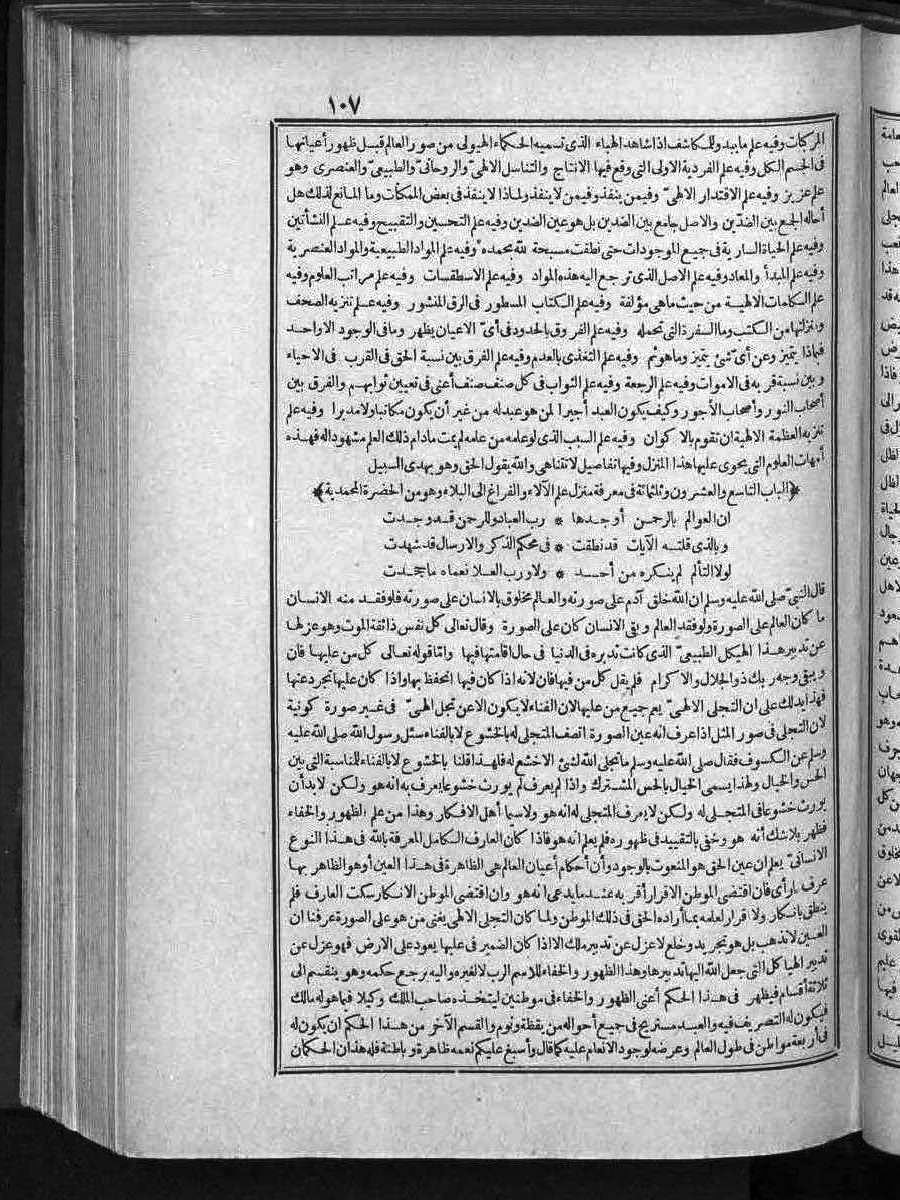 ١٠٧
المركبات وفيه علم ما يبدو للمكاشف اذا شاهد الهباء الذى تسميه الحكماء الهيولى من صور العالم قبل ظهور أعيانها
فى الجسم الكل وفيه علم الفردية الاولى التى وقع فيها الانتاج والتناسل الالهىّ والروحانىّ والطبيعىّ والعنصرى وهو
علم عزيز وفيه علم الاقتدار الالهىّ وفيمن ينفذ وفيمن لا ينفذ ولماذا لا ينفذ فى بعض الممكنات وما المانع لذلك هل
أحاله الجمع بين الضدّين والاصل جامع بين الضدين بل هو عين الضدين وفيه علم التحسين والتقبيح وفيه علم النشأتين
وفيه علم الحياة السارية فى جميع الموجودات حتى نطقت مسبحة لله بحمده وفيه علم المواد الطبيعية والمواد العنصرية
وفيه علم المبدأ والمعاد وفيه علم الاصل الذى ترجع اليه هذه المواد وفيه علم الاسطقسات وفيه علم مراتب العلوم وفيه
علم الكلمات الالهية من حيث ما هى مؤلفة وفيه علم الكتاب المسطور فى الرق المنشور وفيه علم تنزيه الصحف
ومنزلتها من الكتب وما السفرة التى تحمله وفيه علم الفروق بالحدود فى أىّ الاعيان يظهر وما فى الوجود الا واحد
فبماذا يتميز وعن أىّ شئ يتميز وما هو ثم وفيه علم التغذى بالعدم وفيه علم الفرق بين نسبة الحق فى القرب فى الاحياء
وبين نسبة قربه فى الاموات وفيه علم الرجعة وفيه علم الثواب فى كل صنف صنف أعنى فى تعيين ثوابهم والفرق بين
أصحاب النور وأصحاب الأجور وكيف يكون العبد أجيرا لمن هو عبد له من غير أن يكون مكاتبا ولا مدبرا وفيه علم
تنزيه العظمة الالهية ان تقوم بالاكوان وفيه علم السبب الذى لو علمه من علمه لم يمت مادام ذلك العلم مشهودا له فهذه
أمهات العلوم التى يحوى عليها هذا المنزل وفيها تفاصيل لا تتناهى والله يقول الحق وهو يهدى السبيل
﴿الباب التاسع والعشرون وثلثمائة فى معرفة منزل علم الآلاء والفراغ الى البلاء وهو من الحضرة المحمدية﴾
ان العوالم بالرحمن أوجدها * رب العباد وللرحمن قد وجدت
وبالذى قلته الآيات قد نطقت * فى محكم الذكر والارسال قد شهدت
لولا التألم لم ينكره من أحد * ولا ورب العلا نعماه ما جحدت
قال النبىّ صلى الله عليه وسلم ان الله خلق آدم على صورته والعالم مخلوق بالانسان على صورته فلو فقد منه الانسان
ما كان العالم على الصورة ولو فقد العالم وبقى الانسان كان على الصورة وقال تعالى كل نفس ذائقة الموت وهو عزلها
عن تدبير هذا الهيكل الطبيعىّ الذى كانت تدبره فى الدنيا فى حال اقامتها فيها وانما قوله تعالى كل من عليها فان
ويبقى وجه ربك ذو الجلال والاكرام فلم يقل كل من فيها فان لانه اذا كان فيها انحفظ بها واذا كان عليها تجرد عنها
فهذا يدلك على ان التجلى الالهىّ يعم جميع من عليها لان الفناء لا يكون الا عن تجل الهىّ فى غير صورة كونية
لان التجلى فى صور المثل اذا عرف انه عين الصورة اتصف المتجلى له بالخشوع لا بالفناء سئل رسول الله صلى الله عليه
وسلم عن الكسوف فقال صلى الله عليه وسلم ما تجلى الله لشئ الا خشع له فلهذا قلنا بالخشوع لا بالفناء للمناسبة التى بين
الحس والخيال ولهذا يسمى الخيال بالحس المشترك واذا لم يعرف لم يورث خشوعا يعرف به انه هو ولكن لا بد أن
يورث خشوعا فى المتجلى له ولكن لا يعرف المتجلى له انه هو ولا سيما أهل الافكار وهذا من علم الظهور والخفاء
فظهر بلا شك أنه هو وخفى بالتقييد فى ظهوره فلم يعلم انه هو فاذا كان العارف الكامل المعرفة بالله فى هذا النوع
الانسانىّ يعلم ان عين الحق هو المنعوت بالوجود وأن أحكام أعيان العالم هى الظاهرة فى هذا العين أو هو الظاهر بها
عرف ما رأى فان اقتضى الموطن الاقرار أقر به عند ما يدعى انه هو وان اقتضى الموطن الانكار سكت العارف فلم
ينطق بانكار ولا اقرار لعلمه بما أراده الحق فى ذلك الموطن ولما كان التجلى الالهى يغنى من هو على الصورة عرفنا ان
العين لا تذهب بل هو تجريد وخلع لا عزل عن تدبير ملك الا اذا كان الضمير فى عليها يعود على الارض فهو عزل عن
تدبير الهياكل التى جعل الله اليها تدبيرها وهذا الظهور والخفاء للاسم الرب لا لغيره واليه يرجع حكمه وهو ينقسم الى
ثلاثة أقسام فيظهر فى هذا الحكم أعنى الظهور والخفاء فى موطنين ليتخذه صاحب الملك وكيلا فيما هو له مالك
فيكون له التصريف فيه والعبد مستريح فى جميع أحواله من يقظة ونوم والقسم الآخر من هذا الحكم ان يكون له
فى أربعة مواطن فى طول العالم وعرضه لوجود الانعام عليه كما قال وأسبغ عليكم نعمه ظاهرة وباطنة فله هذان الحكمان